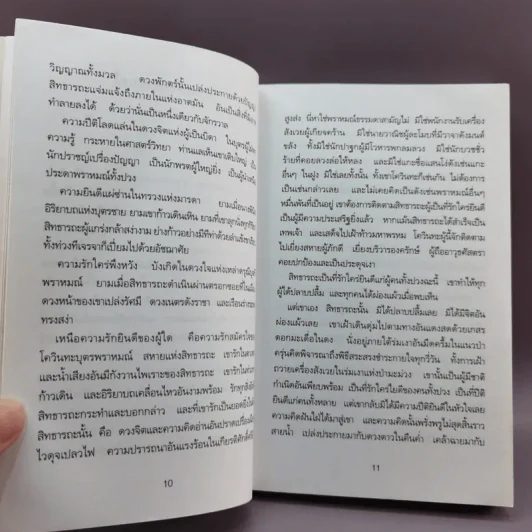 วิญญาณทั้งมวล ดวงพักตร์นั้นเปล่งประกายด้วยปัญญา
สิทธารถะแจ่มแจ้งถึงภายในแห่งอาตมัน อันเป็นสิ่งที่
ทำลายลงได้ ด้วยว่านั่นเป็นหนึ่งเดียวกับจักรวาล
ความปีติโลดแล่นในดวงจิตแห่งผู้เป็นบิดา ในบุตรผู้
ความรู้ กระหายในศาสตร์วิทยา ท่านแลเห็นเขาเติบใหญ่ เป็น
นักปราชญ์เปรื่องปัญญา เป็นนักพรตผู้ใหญ่ยิ่ง เป็นผู้
ประดาพราหมณ์ทั้งปวง
ความยินดีแผ่ซ่านในทรวงแห่งมารดา ยามเมื่อ
อิริยาบถแห่งบุตรชาย ยามเขาก้าวเดินเหิน ยามที่เขาลุกนั่ง
สิทธารถะผู้แกร่งกล้าสง่างาม ย่างก้าวอย่างมีทีท่าด้วยลำแข้ง
ทั้งท่วงทีเจรจาก็เปี่ยมไปด้วยอัชฌาศัย
ความรักใคร่พึงหวัง บังเกิดในดวงใจแห่งเหล่าดรุณี
พราหมณ์ ยามเมื่อสิทธารถะดำเนินผ่านตรอกซอยที่ในเมือง
ดวงหน้าของเขาเปล่งรัศมี ดวงเนตรดังราชา และเรือนร่าง
ทรงสง่า
เหนือความรักยินดีของผู้ใด คือความรักสมัครใคร่
โควินทะบุตรพราหมณ์ สหายแห่งสิทธารถะ เขารักในดวง
และน้ำเสียงอันมีกังวานไพเราะของสิทธารถะ เขารักในท่า
ก้าวเดิน และอิริยาบถเคลื่อนไหวอันงามพร้อม รักทุกสิ่ง
สิทธารถะกระทำและบอกกล่าว และที่เขารักเป็นยอดยิ่ง
สิทธารถะนั้น คือ ดวงจิตและความคิดอ่านอันปราดเปรื่อง
ไวดุจเปลวไฟ ความปรารถนาอันแรงร้อนในเกียรติศักดิ์
10
สูงส่ง นี่หาใช่พราหมณ์ธรรมดาสามัญไม่ มิใช่พนักงานรับเครื่อง
สังเวยผู้เกียจคร้าน มิใช่นายวาณิชผู้ละโมบที่มีวาจาดังมนต์
ขลัง ทั้งมิใช่นักปาฐกผู้มีโวหารพกลมลวง มิใช่นักบวชชั่ว
ร้ายที่คอยลวงล่อให้หลง และมิใช่แกะซื่อแสนโง่ดังเช่นแกะ
อื่นๆ ในฝูง มิใช่เลยทั้งนั้น ทั้งเขาโควินทะก็เช่นกัน ไม่ต้องการ
เป็นเช่นกล่าวเลย และไม่เคยคิดเป็นดังเช่นพราหมณ์อื่นๆ
หมื่นพันที่เป็นอยู่ เขาต้องการติดตามสิทธารถะผู้เป็นที่รักใคร่ยินดี
เป็นผู้มีความประเสริฐยิ่งแล้ว หากแม้นสิทธารถะได้สำเร็จเป็น
เทพเจ้า และเสด็จไปเฝ้าท้าวมหาพรหม โควินทะผู้นี้จักติดตาม
ไปเยี่ยงสหายผู้ภักดี เยี่ยงบริวารองครักษ์ ผู้ถืออาวุธศัสตรา
คอยปกป้องและเป็นประดุจเงา
สิทธารถะเป็นที่รักใคร่ยินดีแก่ผู้คนทั้งปวงฉะนี้ เขาทำให้ทุก
ผู้ได้ปลาบปลื้ม และทุกคนได้ผ่องแผ้วเมื่อพบเห็น
แต่เขาเอง สิทธารถะนั้น มิได้ปลาบปลื้ม มิได้มีจิตอัน
ผ่องแผ้วเลย เขาเฝ้าเดินดุ่มไปตามทางอันแดงสดด้วยเกสร
ดอกมะเดื่อในดง นั่งอยู่ภายใต้ร่มเงาอันมืดครึ้มในแนวป่า
ครุ่นคิดพิจารณาถึงพิธีสระสรงชำระกายใจทุกวี่วัน ทั้งการเฝ้า
ถวายเครื่องสังเวยในร่มเงาแห่งป่ามะม่วง เขานั้นเป็นผู้มีชาติ
กำเนิดอันเพียบพร้อม เป็นที่รักใคร่ยินดีของคนทั้งปวง เป็นที่ปีติ
ยินดีแก่คนทั้งหลาย แต่เขากลับมิได้มีความปีติยินดีในหัวใจเลย
ความคิดฝันไม่ได้มาสู่เขา และความคิดนั้นพรั่งพรูไม่สุดสิ้นราว
สายน้ำ เปล่งประกายมากับดวงดาวในคืนค่ำ เคล้าฉายมากับ
11